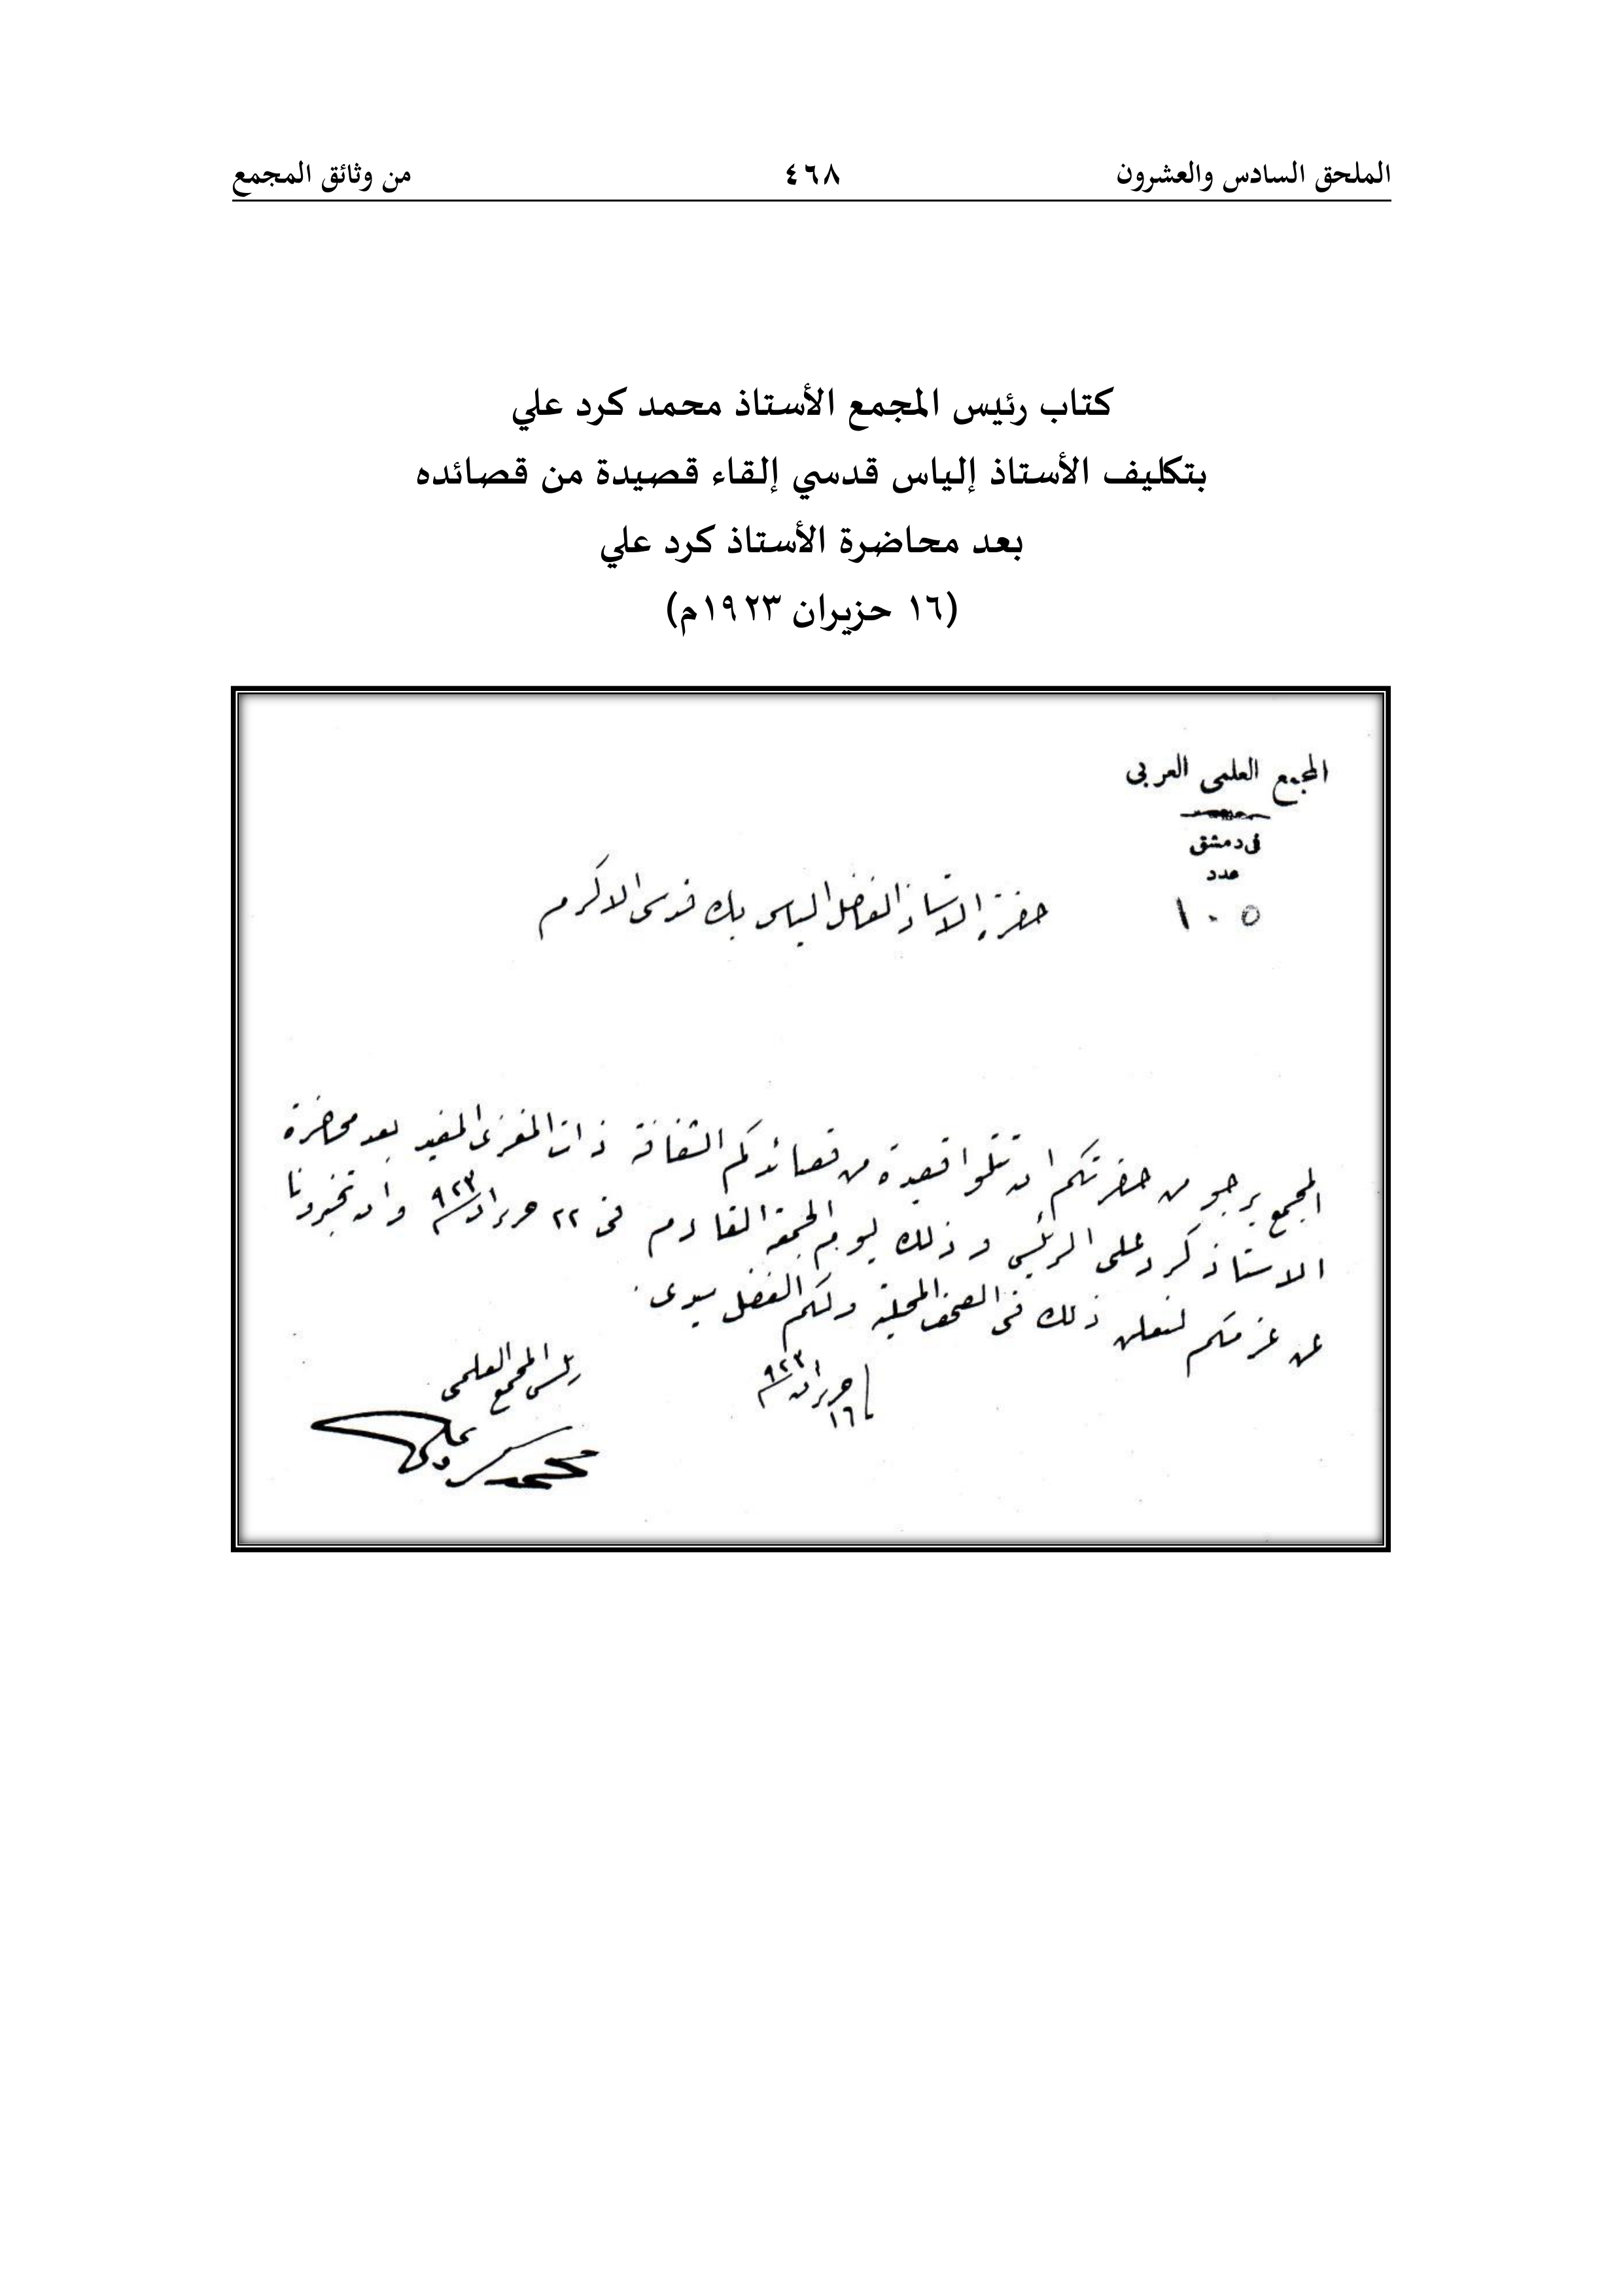 الملحق السادس والعشرون ٤٦٨ من وثائق المجمع
كتاب رئيس المجمع الأستاذ محمد كرد علي
بتكليف الأستاذ إلياس قدسي إلقاء قصيدة من قصائده
بعد محاضرة الأستاذ كرد علي
(١٦ حزيران ١٩٢٣م)
المجمع العلمى العربى
فى دمشق
عدد
١٠٥
حضرة الاستاذ الفاضل الياس بك قدسى الاكرم
المجمع يرجو من حضرتكم ان تتلوا قصيدة من قصائدكم ذات المغزى المفيد بعد محاضرة
الاستاذ كرد على الرئيس وذلك ليوم الجمعة القادم فى ٢٢ حزيران ٩٢٣ وان تخبرونا
عن عزمكم لنعلن ذلك فى الصحف المحلية ولكم الفضل سيدى.
١٦ حزيران ٩٢٣
رئيس المجمع العلمى
محمد كرد على